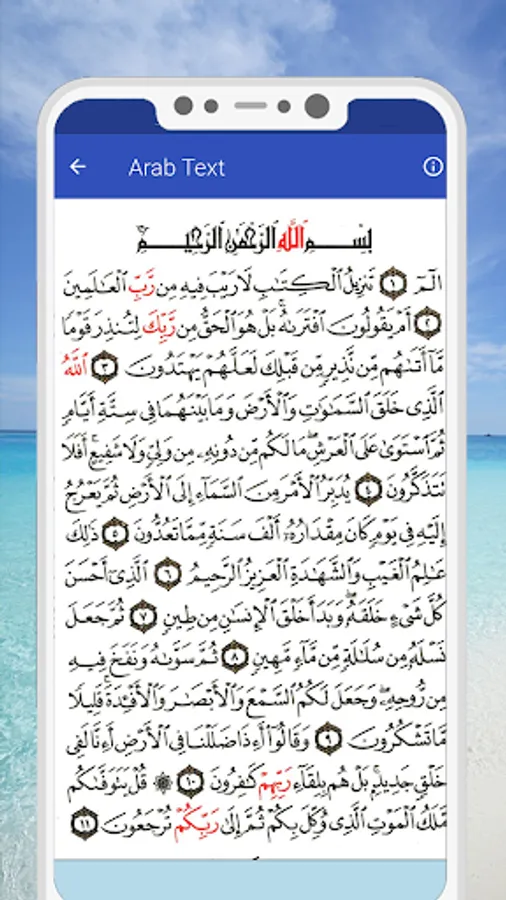 Arab Text
بِسْمِ ٱللَّهِ ٱلرَّحْمَٰنِ ٱلرَّحِيمِ
الٓمٓ ١ تَنزِيلُ ٱلْكِتَٰبِ لَا رَيْبَ فِيهِ مِن رَّبِّ ٱلْعَٰلَمِينَ
٢ أَمْ يَقُولُونَ ٱفْتَرَىٰهُ ۚ بَلْ هُوَ ٱلْحَقُّ مِن رَّبِّكَ لِتُنذِرَ قَوْمًا
مَّآ أَتَىٰهُم مِّن نَّذِيرٍ مِّن قَبْلِكَ لَعَلَّهُمْ يَهْتَدُونَ ٣ ٱللَّهُ
ٱلَّذِى خَلَقَ ٱلسَّمَٰوَٰتِ وَٱلْأَرْضَ وَمَا بَيْنَهُمَا فِى سِتَّةِ أَيَّامٍ
ثُمَّ ٱسْتَوَىٰ عَلَى ٱلْعَرْشِ ۖ مَا لَكُم مِّن دُونِهِۦ مِن وَلِىٍّ وَلَا شَفِيعٍ ۚ أَفَلَا
تَتَذَكَّرُونَ ٤ يُدَبِّرُ ٱلْأَمْرَ مِنَ ٱلسَّمَآءِ إِلَى ٱلْأَرْضِ ثُمَّ يَعْرُجُ
إِلَيْهِ فِى يَوْمٍ كَانَ مِقْدَارُهُۥٓ أَلْفَ سَنَةٍ مِّمَّا تَعُدُّونَ ٥ ذَٰلِكَ
عَٰلِمُ ٱلْغَيْبِ وَٱلشَّهَٰدَةِ ٱلْعَزِيزُ ٱلرَّحِيمُ ٦ ٱلَّذِىٓ أَحْسَنَ
كُلَّ شَىْءٍ خَلَقَهُۥ ۖ وَبَدَأَ خَلْقَ ٱلْإِنسَٰنِ مِن طِينٍ ٧ ثُمَّ جَعَلَ
نَسْلَهُۥ مِن سُلَٰلَةٍ مِّن مَّآءٍ مَّهِينٍ ٨ ثُمَّ سَوَّىٰهُ وَنَفَخَ فِيهِ
مِن رُّوحِهِۦ ۖ وَجَعَلَ لَكُمُ ٱلسَّمْعَ وَٱلْأَبْصَٰرَ وَٱلْأَفْـِٔدَةَ ۚ قَلِيلًا
مَّا تَشْكُرُونَ ٩ وَقَالُوٓا۟ أَءِذَا ضَلَلْنَا فِى ٱلْأَرْضِ أَءِنَّا لَفِى
خَلْقٍ جَدِيدٍۭ ۚ بَلْ هُم بِلِقَآءِ رَبِّهِمْ كَٰفِرُونَ ١٠ ۞ قُلْ يَتَوَفَّىٰكُم
مَّلَكُ ٱلْمَوْتِ ٱلَّذِى وُكِّلَ بِكُمْ ثُمَّ إِلَىٰ رَبِّكُمْ تُرْجَعُونَ ١١